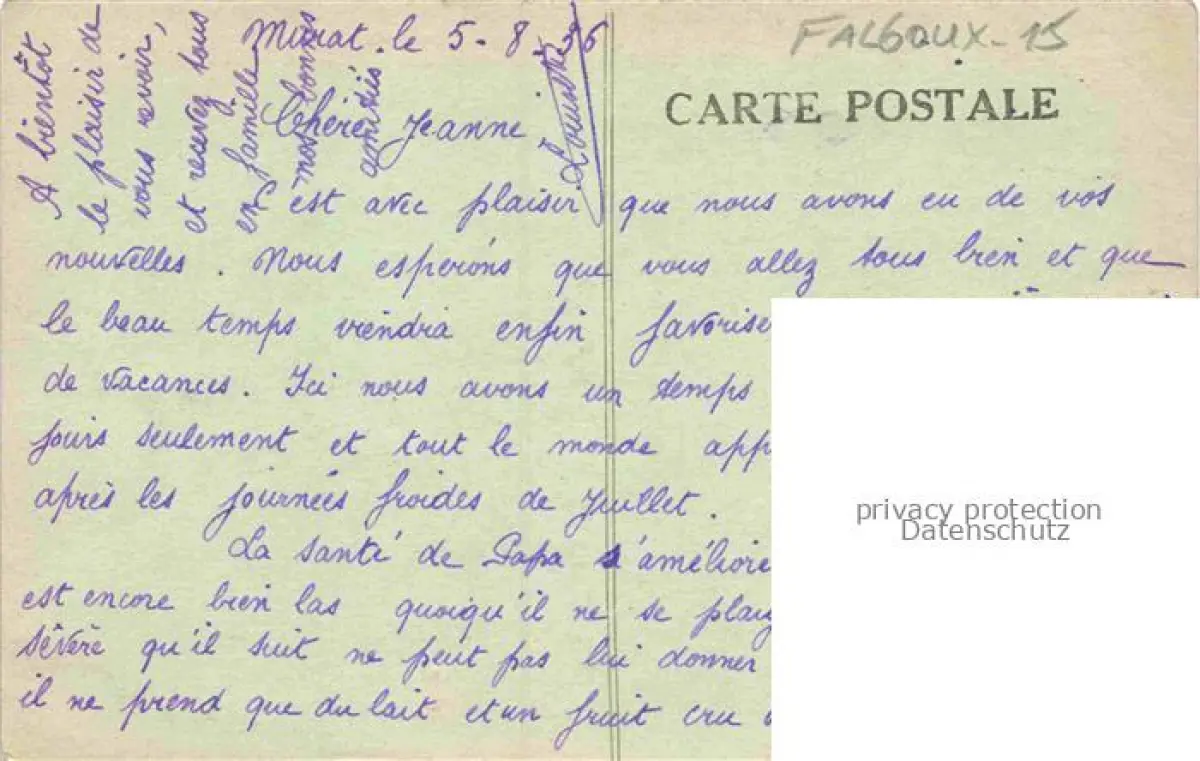 Murat. le 5-8-36
FALGOUX-15
CARTE POSTALE
Chère Jeanne
C'est avec plaisir que nous avons eu de vos
nouvelles. Nous espérons que vous allez tous bien et que
le beau temps viendra enfin favoriser
de vacances. Ici nous avons un temps
jours seulement et tout le monde app
après les journées froides de Juillet.
La santé de Papa s'améliore
est encore bien las quoiqu'il ne se plaig
sévère qu'il suit ne peut pas lui donner
il ne prend que du lait et un fruit cru
A bientôt
le plaisir de
vous revoir,
et recevez tous
en famille
nos bonnes
amitiés
privacy protection
Datenschutz